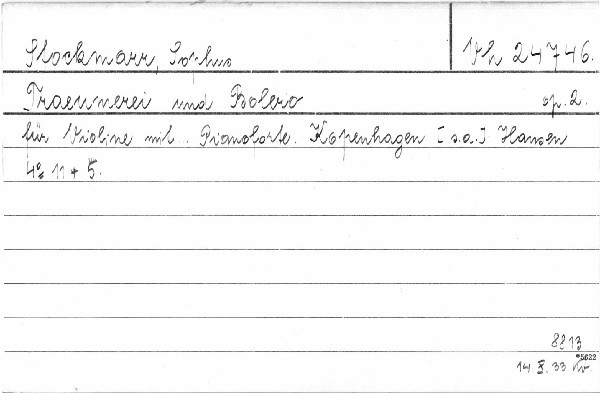 Stockmarr, Sophus
Vh 24746.
Traeumerei und Bolero op. 2.
für Violine mit.. Pianoforte. Kopenhagen [s.a.] Hansen
4° 11 + 5.
8813
*5622
14. X. 33